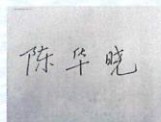 陈华晓